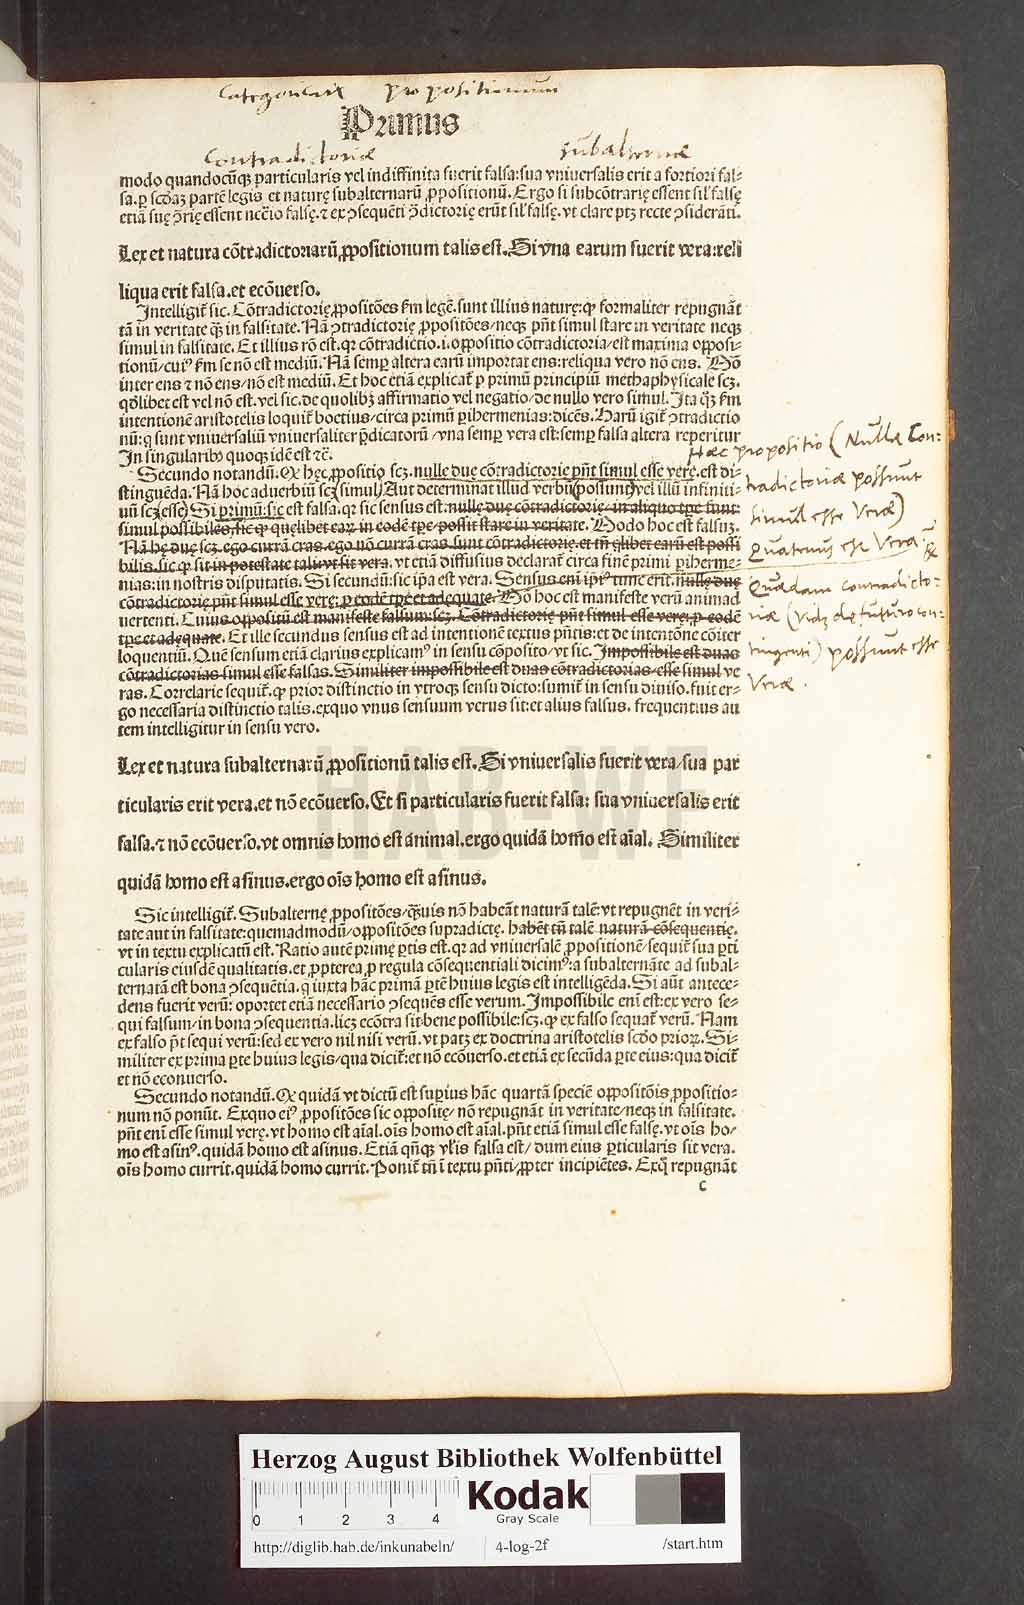 Categoricarum propositionum
Primus
Contradictoriæ subalternæ
modo quandocūq; particularis vel indiffinita fuerit falsa: sua vniuersalis erit a fortiori fal-
sa. ꝑ scḋaꝫ partē legis et naturę subalternarū ꝓpositionū. Ergo si subcōtrarię essent sil' falsę
etiā suę ꝯ̄rię essent necīo falsę. ⁊ ex ꝯsequēti ꝯ̄dictorię erūt sil' falsę. vt clare ptꝫ recte ꝯsiderāti.
Lex et natura cōtradictoriarū ꝓpositionum talis est. Si vna earum fuerit vera: reli
liqua erit falsa. et ecōuerso.
Intelligit̄ sic. Cōtradictorię ꝓpositōes ẜm legē. sunt illius naturę: ꝙ formaliter repugnāt
tā in veritate q̄ꝫ in falsitate. Nā ꝯtradictorię ꝓpositōes/neqꝫ pn̄t simul stare in veritate neqꝫ
simul in falsitate. Et illius rō est. qꝛ cōtradictio. i. oppositio cōtradictoria/est maxima opposi-
tionū/cuiꝰ ẜm se nō est mediū. Nā semꝑ altera earū importat ens: reliqua vero nō ens. Mō
inter ens ⁊ nō ens/nō est mediū. Et hoc etiā explicat̄ ꝑ primū principiū methaphysicale scꝫ.
qḋlibet est vel nō est. vel sic. de quolibꝫ affirmatio vel negatio/de nullo vero simul. Ita q̄ꝫ ẜm
intentionē aristotelis loquit̄ boetius/circa primū ꝑihermenias: dicēs. Harū igit̄ ꝯtradictio
nū: q̄ sunt vniuersaliū vniuersaliter p̄dicatorū/vna semꝑ vera est: semꝑ falsa altera reperitur
In singularibꝰ quoqꝫ idē est ⁊c̄.
Secundo notandū. Ꝙ hęc ꝓpositio scꝫ. nullę duę cōtradictorię pn̄t simul esse verę. est di-
stinguēda. Nā hoc aduerbiū scꝫ (simul) Aut determinat illud verbū (possunt) vel illū infiniti-
uū scꝫ (esse) Si primū: sic est falsa. qꝛ sic sensus est. nullę duę cōtradictorię/in aliquo tp̄e sunt:
simul possibiles/sic ꝙ quęlibet earꝫ in eodē tp̄e possit stare in veritate. Modo hoc est falsuꝫ.
Nā hę duę scꝫ. ego currā cras. ego nō currā cras. sunt cōtradictorię. et tn̄ q̄libet earū est possi
bilis. sic ꝙ sit in potestate tali: vt sit vera. vt etiā diffusius declarat̄ circa finē primi ꝑiherme-
nias: in nostris disputatis. Si secundū: sic ip̄a est vera. Sensus eni ip̄iꝰ tunc erit. nullę duę
cōtradictorię pn̄t simul esse verę: ꝑ eodē tp̄e et adequate. Mō hoc est manifeste verū animad
uertenti. Cuius oppositū est manifeste falsum: scꝫ. Cōtradictorię pn̄t simul esse verę: ꝑ eodē
tp̄e et adequate. Et ille secundus sensus est ad intentionē textus pn̄tis: et de intentōne cōiter
loquentiū. Quē sensum etiā clarius explicamꝰ in sensu cōposito/vt sic. Impossibile est duas
cōtradictorias simul esse falsas. Similiter impossibile est duas cōtradictorias/esse simul ve
ras. Correlarie sequit̄. ꝙ prior distinctio in vtroqꝫ sensu dicto: sumit̄ in sensu diuiso. fuit er-
go necessaria distinctio talis. exquo vnus sensuum verus sit: et alius falsus. frequentius au
tem intelligitur in sensu vero.
Hæc propositio (Nullæ Con-
tradictoriæ possunt
simul esse Veræ)
Quatenus est Vera. &
Quædam contradicto-
riæ (vidꝫ de futuro con-
tingenti) possunt esse
Veræ.
Lex et natura subalternarū ꝓpositionū talis est. Si vniuersalis fuerit vera/sua par
ticularis erit vera. et nō ecōuerso. Et si particularis fuerit falsa: sua vniuersalis erit
falsa. ⁊ nō ecōuerso. vt omnis homo est animal. ergo quidā homo est aīal. Similiter
quidā homo est asinus. ergo oīs homo est asinus.
Sic intelligit̄. Subalternę ꝓpositōes/q̄ꝫuis nō habeāt naturā talē: vt repugnēt in veri-
tate aut in falsitate: quemadmodū/oppositōes supradictę. habēt tn̄ talē naturā cōsequentię.
vt in textu explicatū est. Ratio autē primę ꝑtis est. qꝛ ad vniuersalē ꝓpositionē sequit̄ sua ꝑti
cularis eiusdē qualitatis. et ꝓpterea ꝑ regula cōsequentiali dicimꝰ: a subalternāte ad subal-
ternatā est bona ꝯsequētia. q̄ iuxta hāc primā ꝑtē huius legis est intelligēda. Si aūt antece-
dens fuerit verū: oportet etiā necessario ꝯsequēs esse verum. Impossibile eni est: ex vero se-
qui falsum/in bona ꝯsequentia. licꝫ ecōtra sit bene possibile: scꝫ. ꝙ ex falso sequat̄ verū. Nam
ex falso p̄t sequi verū: sed ex vero nil nisi verū. vt patꝫ ex doctrina aristotelis scḋo prioꝝ. Si-
militer ex prima ꝑte huius legis/qua dicit̄: et nō ecōuerso. et etiā ex secūda ꝑte eius: qua dicit̄
et nō econuerso.
Secundo notandū. Ꝙ quidā vt dictū est suꝑius hāc quartā speciē oppositōis ꝓpositio-
num nō ponūt. Exquo eiꝰ ꝓpositōes sic oppositę/nō repugnāt in veritate/neqꝫ in falsitate.
pn̄t eni esse simul verę. vt homo est aīal. oīs homo est aīal. pn̄t etiā simul esse falsę. vt oīs ho/
mo est asinꝰ. quidā homo est asinus. Etiā qn̄qꝫ vl'is falsa est/dum eius ꝑticularis sit vera.
oīs homo currit. quidā homo currit. Ponit̄ tn̄ ī textu pn̄ti/ꝓpter incipiētes. Exꝗ repugnāt
c
HAB-WF
Herzog August Bibliothek Wolfenbüttel
0 1 2 3 4
Kodak
Gray Scale
http://diglib.hab.de/inkunabeln/ 4-log-2f /start.htm